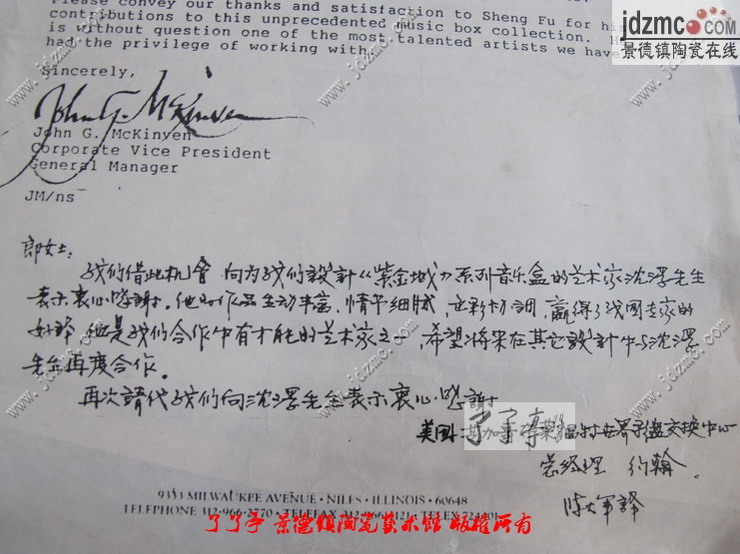 Please convey our thanks and satisfaction to Sheng Fu for hi
contributions to this unprecedented music box collection. H
is without question one of the most talented artists we have
had the privilege of working with.
Sincerely,
John G. McKinyen
John G. McKinyen
Corporate Vice President
General Manager
JM/ns
郎女士:
我们借此机会 向为我们設計《紫金城》系列音乐盒的艺术家沈浮先生
表示衷心感謝。他的作品生动丰富,情节细腻,色彩协調,贏得了我國专家的
好評 他是我们合作中有才能的艺术家之一,希望将来在其它設計中与沈浮
先生再度合作。
再次請代我们向沈浮先生表示衷心感謝
美国 芝加哥 世界 交换中心
总经理 约翰
陈大军譯
9333 MILWAUKEE AVENUE · NILES · ILLINOIS · 60648
TELEPHONE 312-966-2770 · TELEFAX 312-966-3121 · TELEX 724401
jdzmc.com
景德镇陶瓷在线
www.jdzmc.com
了了亭
了了亭 景德镇陶瓷美术館 版權所有